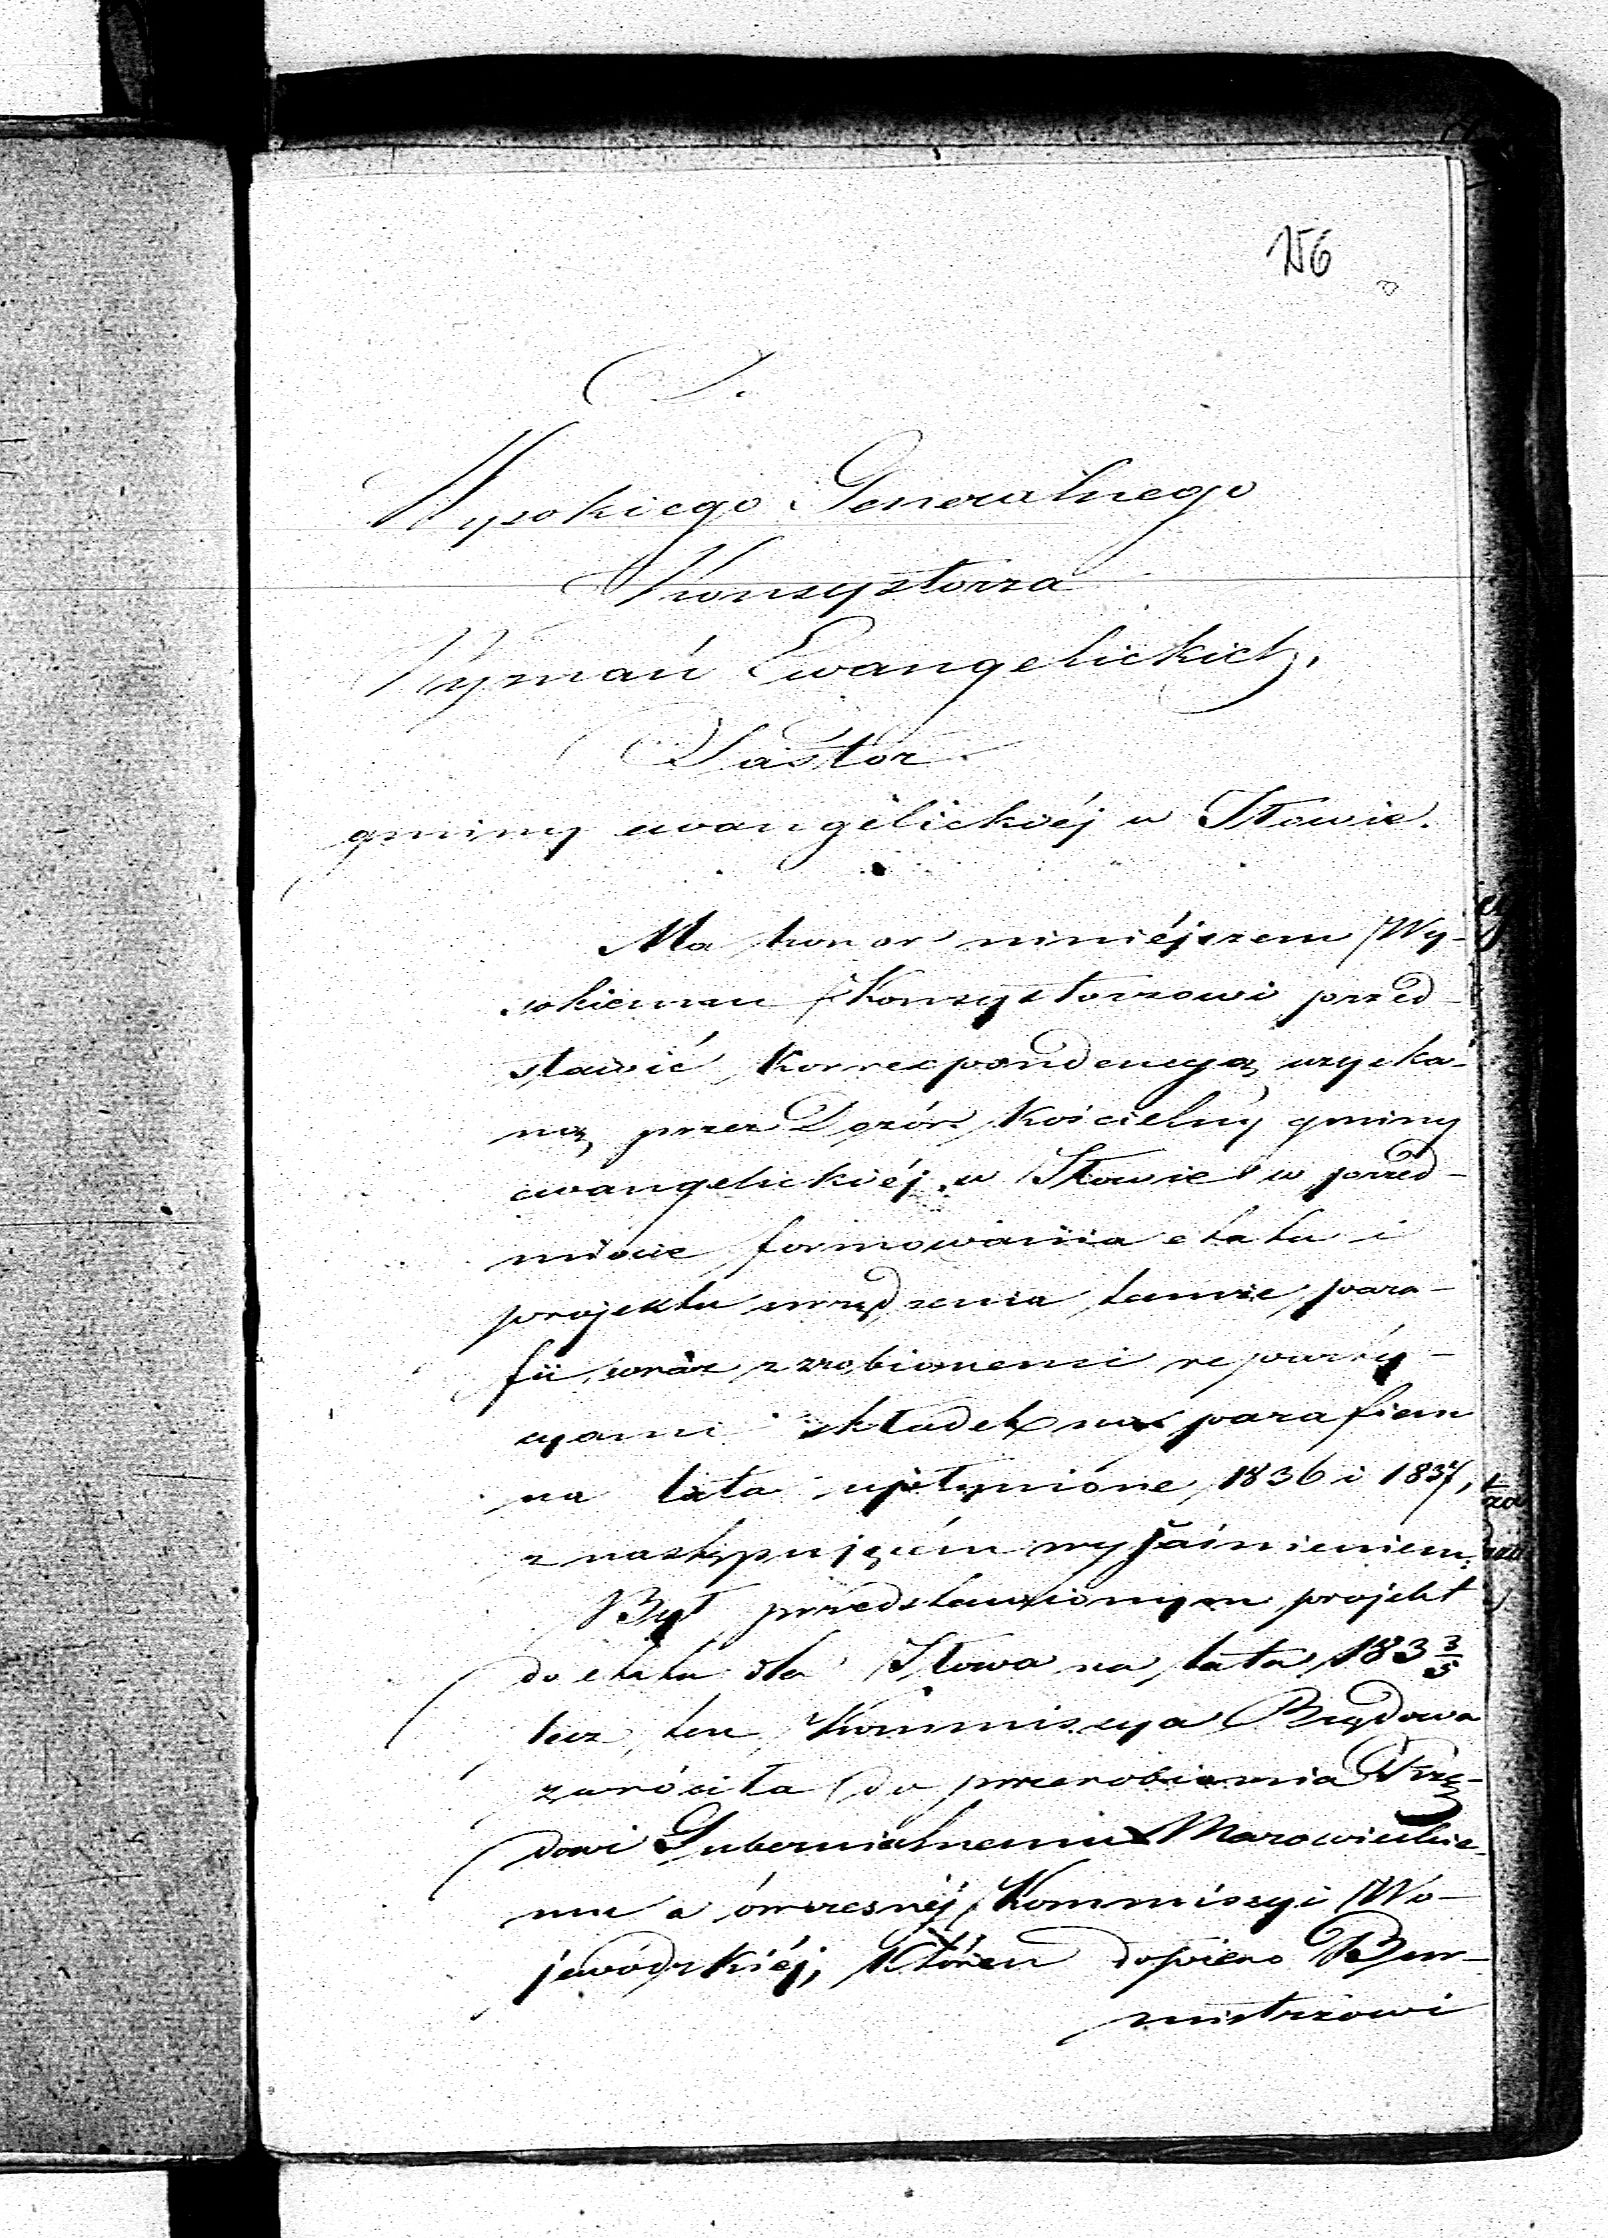 156
Wysokiego Generalnego
Konsystorza
Wyznań Ewangelickich,
Pastor
gminy ewangelickiéj w Iłowie.
Ma honor niniéjszem Wy-
sokiemu Konsystorzowi przed-
stawić Korrespondencyą uzyska-
ną przez Dozór Kościelny gminy
ewangelickiéj w Iłowie w przed-
miocie formowania etatu i
projektu urządzenia tamże para-
fii wraz z zrobionemi reparty-
cyami składek na parafian
na lata upłynione 1836 i 1837,
z następującém wyjaśnieniem.
Był przedstawionym projekt
do etatu dla Iłowa na lata 183 3/5
lecz ten Kommissya Rządowa
zwróciła do przerobienia Rzą-
dowi Gubernialnemu Mazowieckie-
mu a ówczesnéj Kommissyi Wo-
jewódzkiéj, który dopiero Bur-
mistrzowi